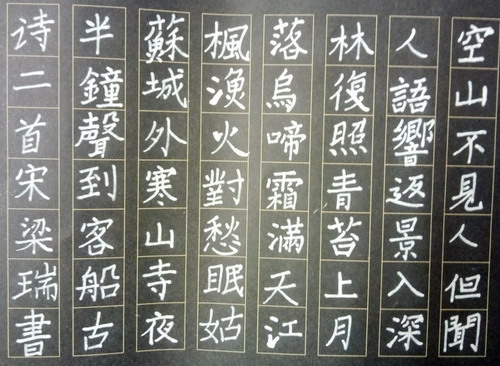 空山不見人但聞
人語響返景入深
林復照青苔上月
落烏啼霜滿天江
楓漁火對愁眠姑
蘇城外寒山寺夜
半鐘聲到客船古
诗二首宋梁瑞書